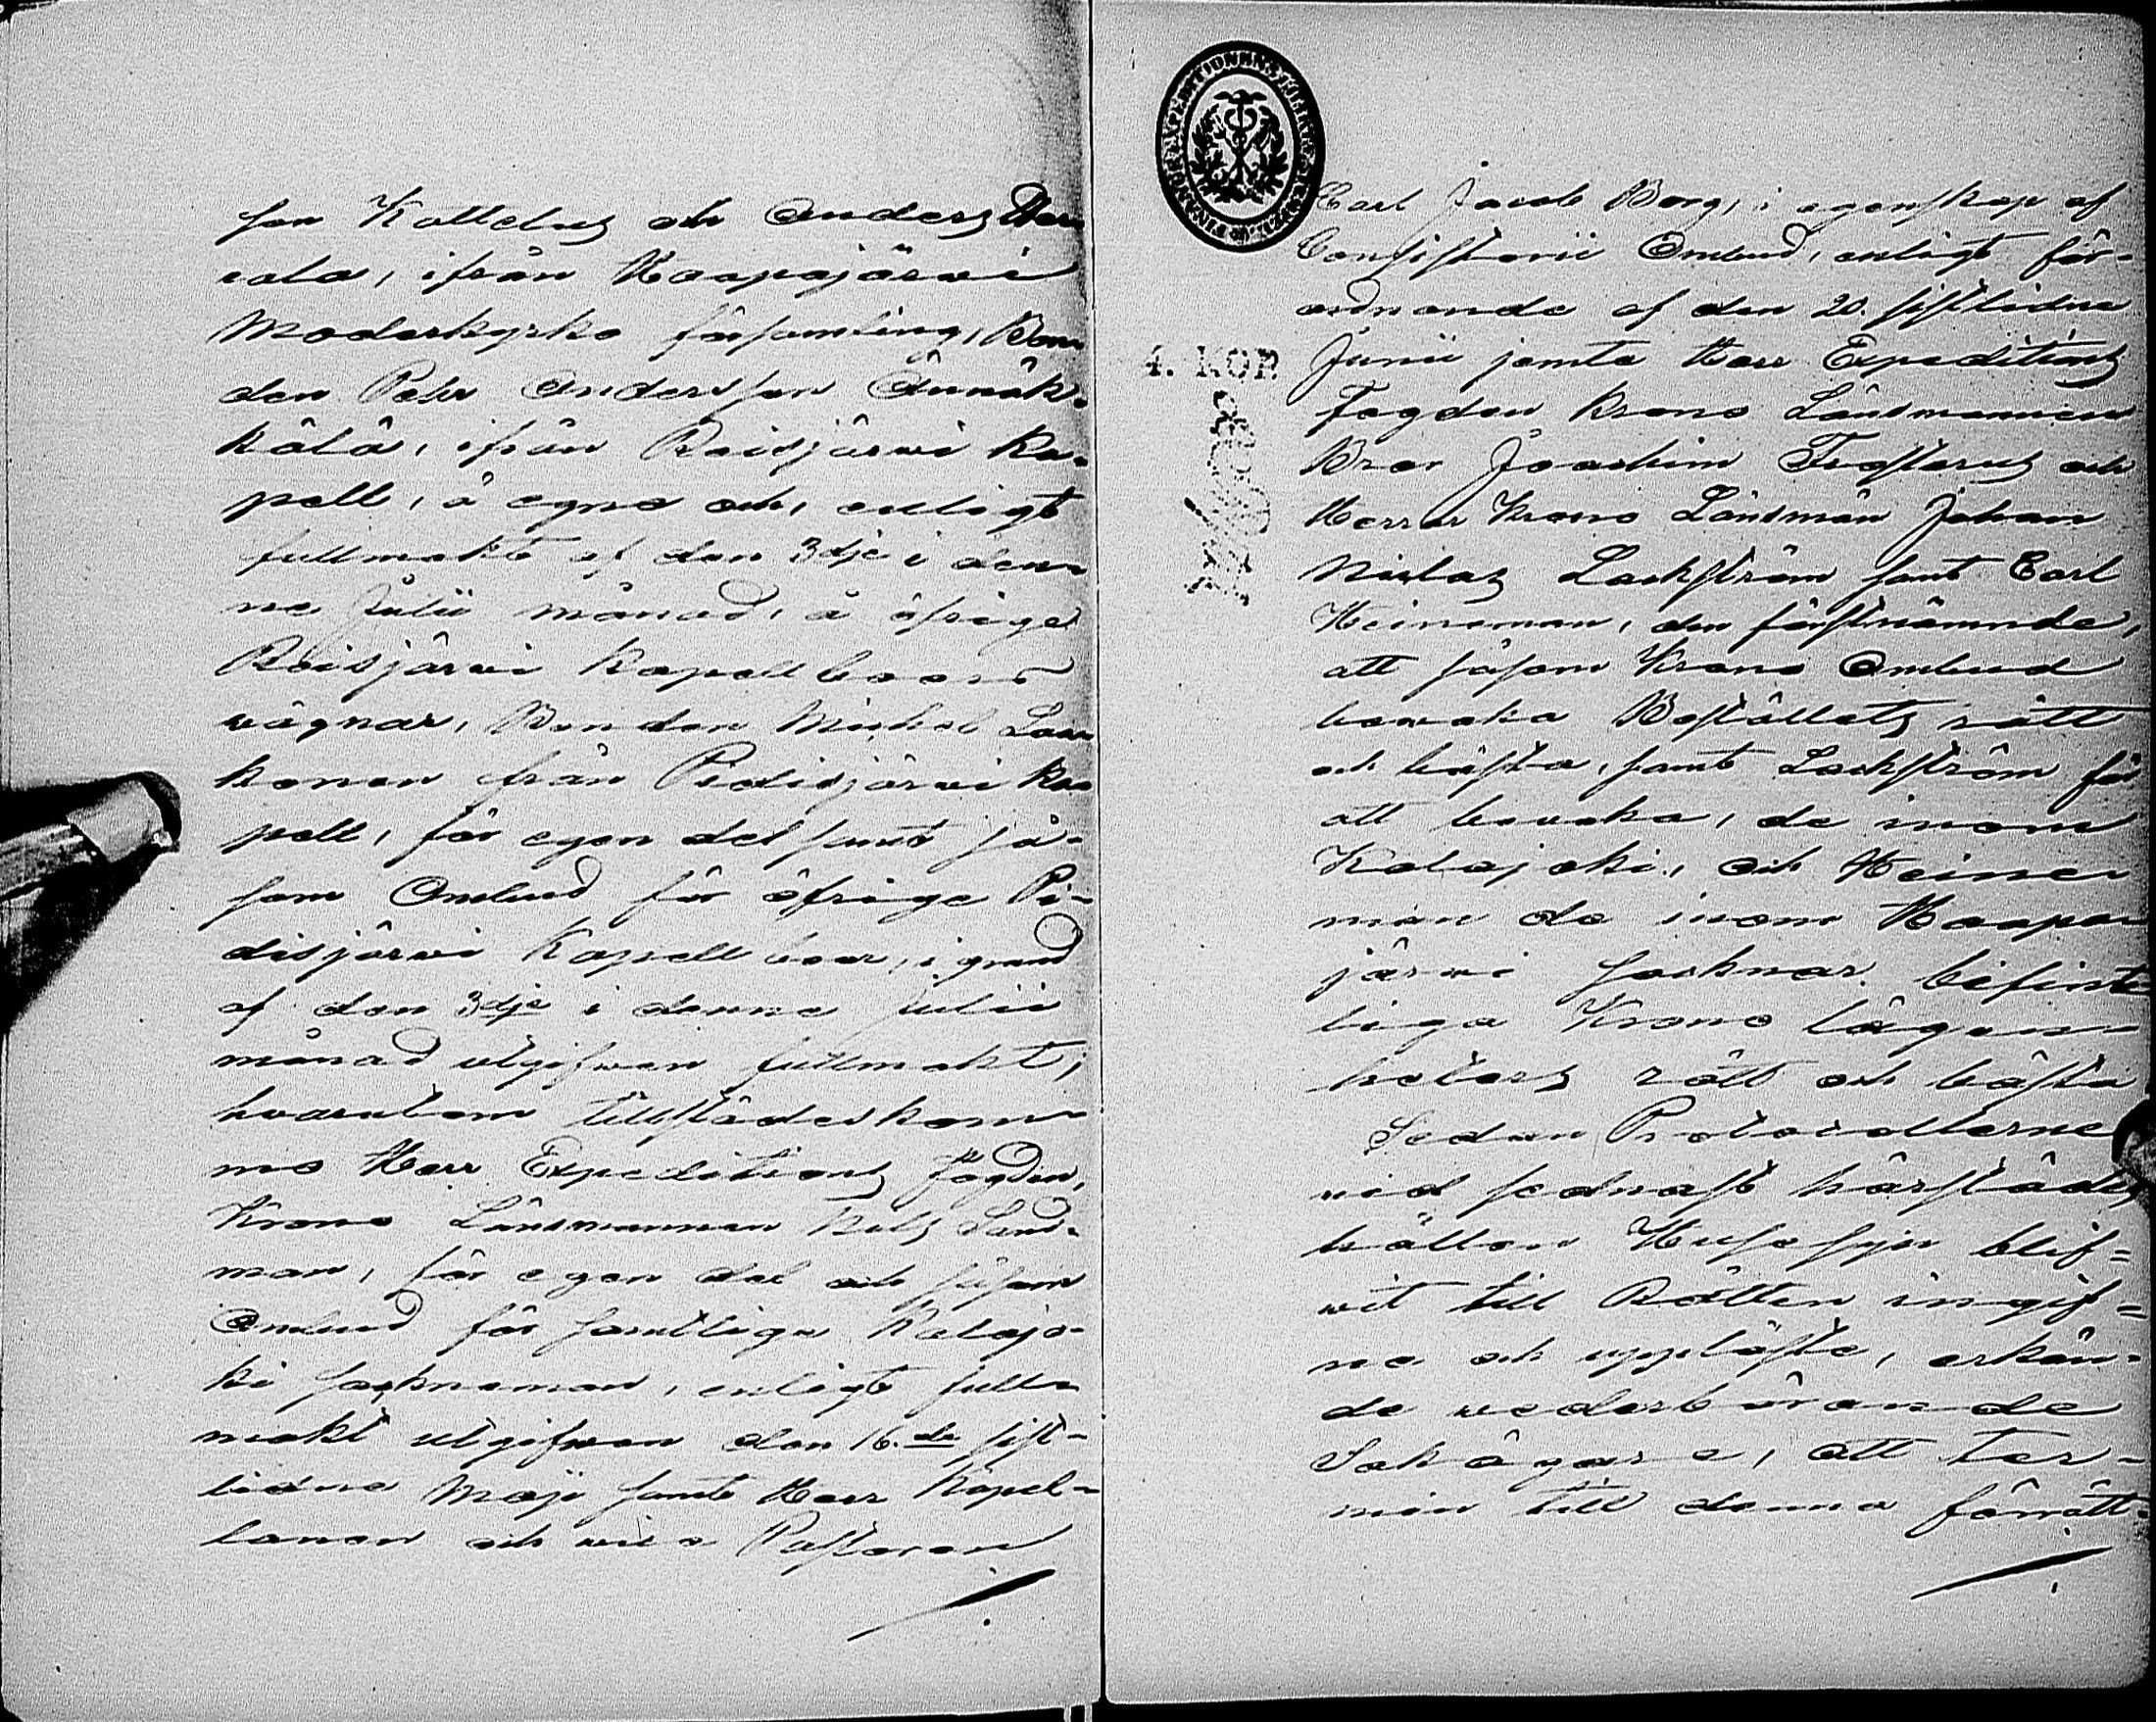 son Kattelus och Anders
vala, ifrån Haapajärwi
Moderkyrko församling, Bon
den Pehr Andersson
kälä, ifrån Reisjärwi Ka-
pell, å egne och, enligt
fullmakt af den 3dje i den-
ne Julii månad, å öfrige
Reisjärwi Kapellboers
wägnar, Bonden Michel
konen från Pidisjärwi Ka
pell, för egen del samt så-
som Ombud för öfrige Pi-
disjärwi Kapellboer, i grund
af den 3dje i denne Julii
månad utgifwen fullmakt,
hvarutom tillstädeskom-
mo Herr Expeditions Fogden,
Krono Länsmannen Nils Sand-
man, för egen del och såsom
Ombud för samtlige Kalajo-
ki socknemän, enligt full-
makt utgifwen den 16.de sist-
lidne Maji samt Herr Kapel-
lanen och vice Pastoren
Carl Jacob Borg, i egenskap af
Consistorii Ombud, enligt för-
ordnande af den 20. sistlidne
Junii jemte Herr Expeditions
4. KOP.
Fogden Krono Länsmannen
Bror Joachim och
Herrar Krono Länsmän Johan
Niclas Lackström samt Carl
Heineman, den förstnämnde,
att såsom Krono Ombud
bewaka Boställets rätt
och bästa, samt Lackström för
att bewaka, de inom
Kalajoki, och Heine-
man de inom Haapa-
järwi socknar befint-
liga Krono lägen-
heters rätt och bästa
Sedan Protocollerne
vid sednast härstädes
hållen Husesyn blif-
wit till Rätten ingif-
ne och uppläste, erkän-
de wederbörande
Sakägare, att ter-
min till denna förrätt-